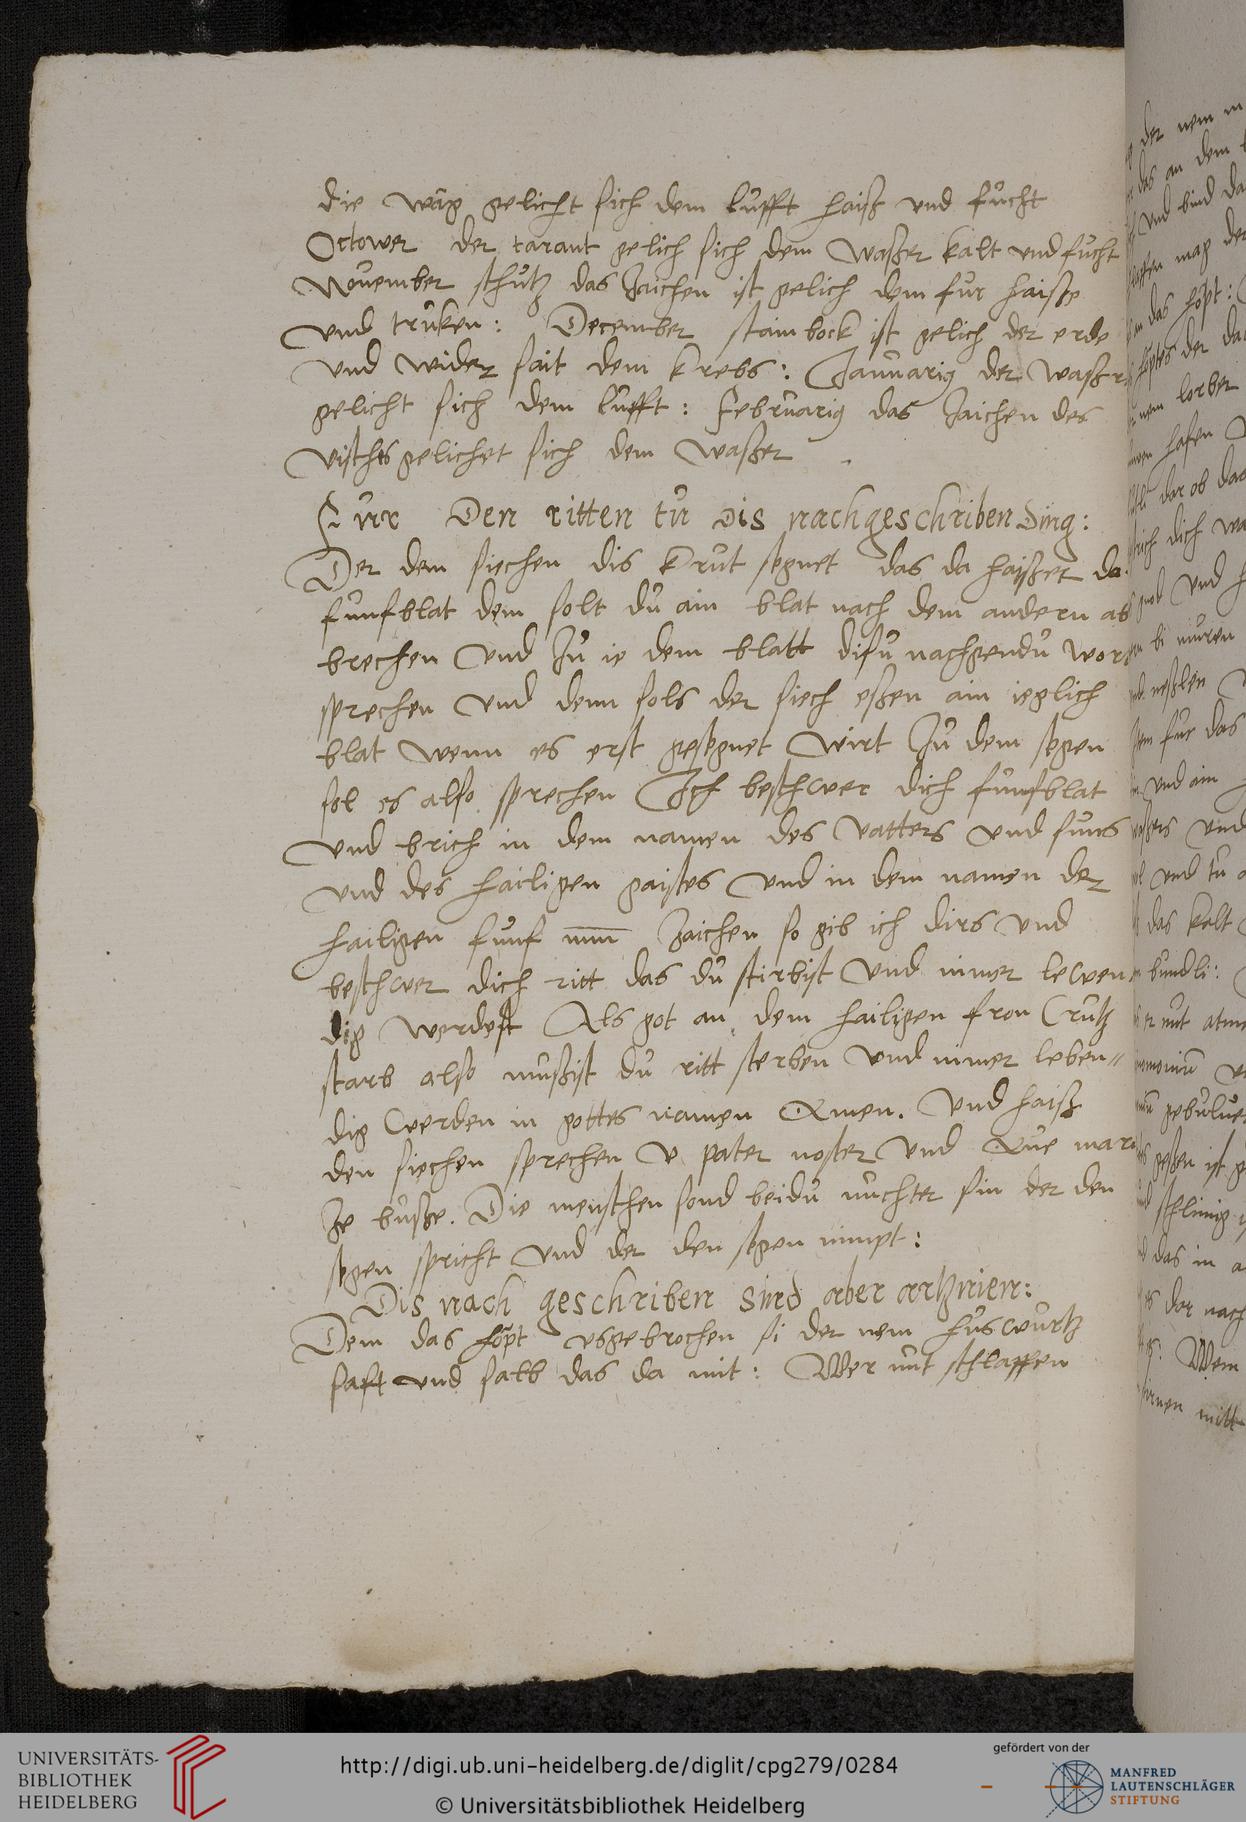 die wäg gelicht sich dem lufft haiß und fucht
Octower der tarant gelich sich dem waßer kalt und fucht
November schutz das zaichen ist gelich dem fur haiße
und truken: December stainbock ist gelich der erde
und wider sait dem krebs: Januarig der waßer
gelicht sich dem lufft: Februarig das zaichen des
vischs gelichet sich dem waßer
Furr Den ritten tu dis nachgeschriben ding:
Der dem siechen dis krut segnet das da haißet da
funfblat dem solt du ain blat nach dem andern ab
brechen und zu ie dem blatt disu nachgendu wort
sprechen und denn sols der siech eßen ain ieglich
blat wenn es erst gesegnet wirt zu dem segen
sol es also sprechen Ich beschwer dich funfblat
und brich in dem namen des vatters und suns
und des hailigen gaistes und in dem namen der
hailigen funf zaichen so gib ich dirs und
beschwer dich ritt das du stirbist und nimer lewen
dig werdest Als got an dem hailigen fron Crutz
starb also mußist du ritt sterben und nimer leben=
dig werden in gottes namen Amen. und haiß
den siechen sprechen v pater noster und Ave mar
ze buße. Die menschen sond beidu nuchter sin der den
segen spricht und der den segen nimpt:
Dis nach geschriben sind aber artznien:
Dem das höpt usgebrochen si der nem huswurtz
saft und salb das da mit: Wer nut schlaffen
der nem
das an dem
und bind da
mag der
das höpt:
höptes der da
nem lorber
hafen
dar ob das
dich
und
bi muren
neßlen
für das
und ain
und
und tu
das kalt
bundli:
nut atme
geßen ist
das in
dar nach
Wem
mitt
UNIVERSITÄTS-
BIBLIOTHEK
HEIDELBERG
http://digi.ub.uni-heidelberg.de/diglit/cpg279/0284
© Universitätsbibliothek Heidelberg
gefördert von der
MANFRED
LAUTENSCHLÄGER
STIFTUNG